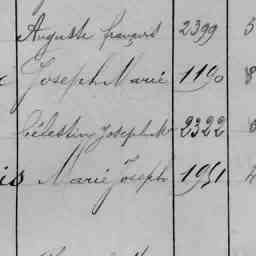 Auguste françois 2399 5
Joseph Marie 1190 8
Célestin Joseph M 2322
is Marie Joseph 1951